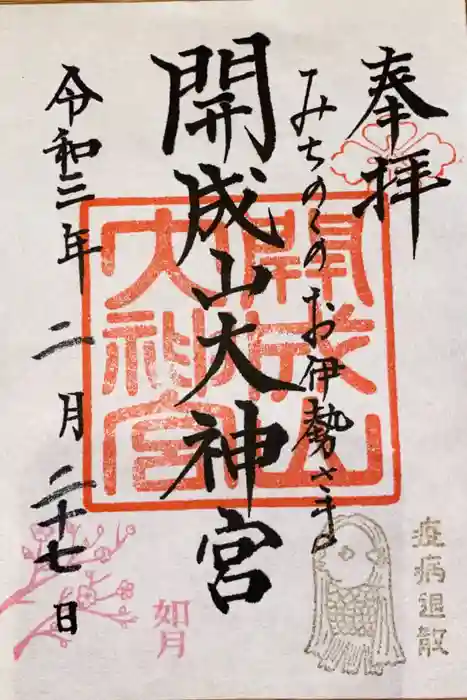 奉拝
みちのくのお伊勢さま
開成山大神宮
令和三年二月二十七日
開成山大神宮
如月
疫病退散